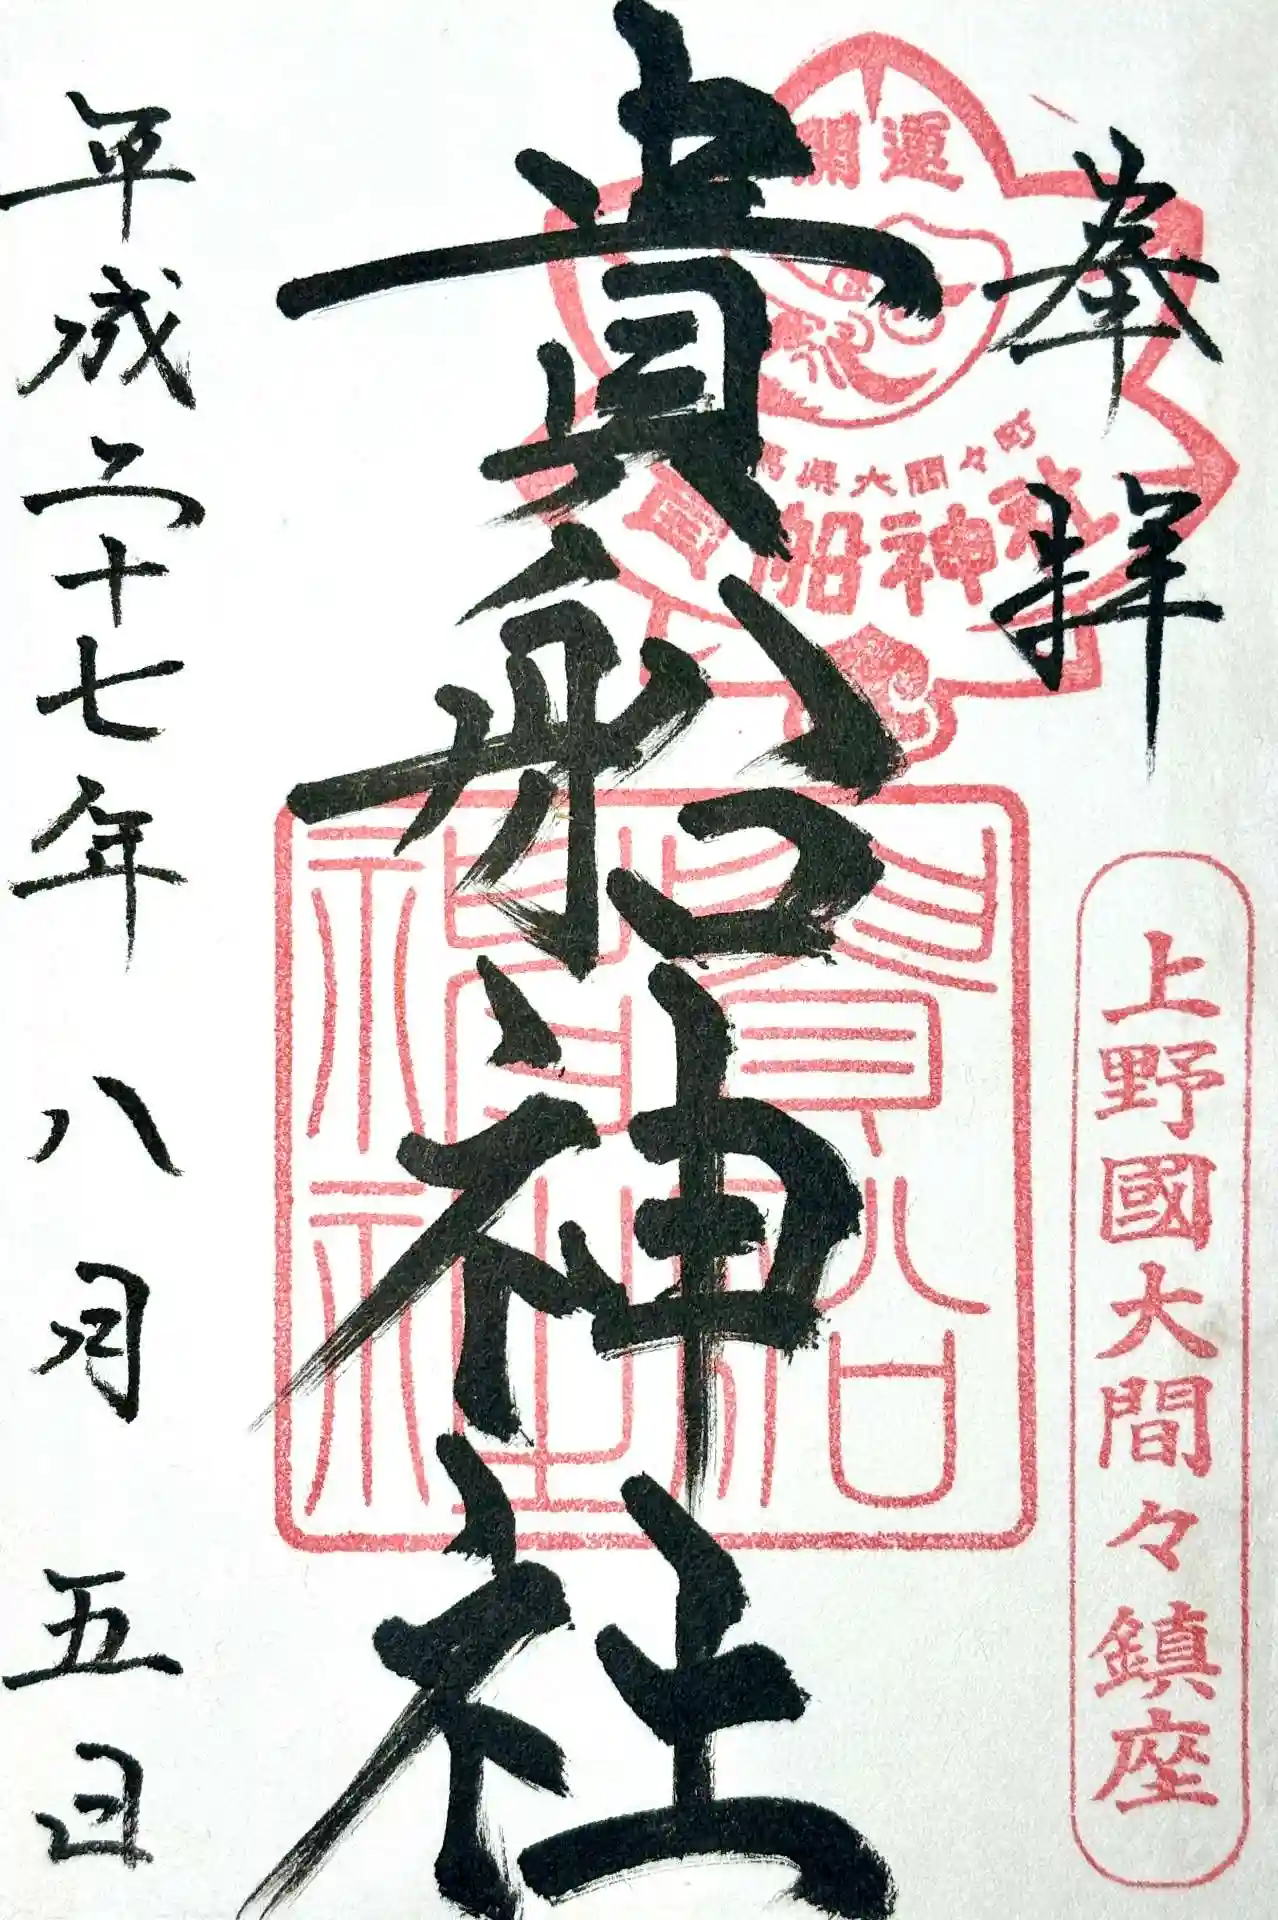 奉拝
上野國大間々鎮座
開運
馬県大間々町
貴船神社
貴船神社
貴船神社
平成二十七年 八月 五日